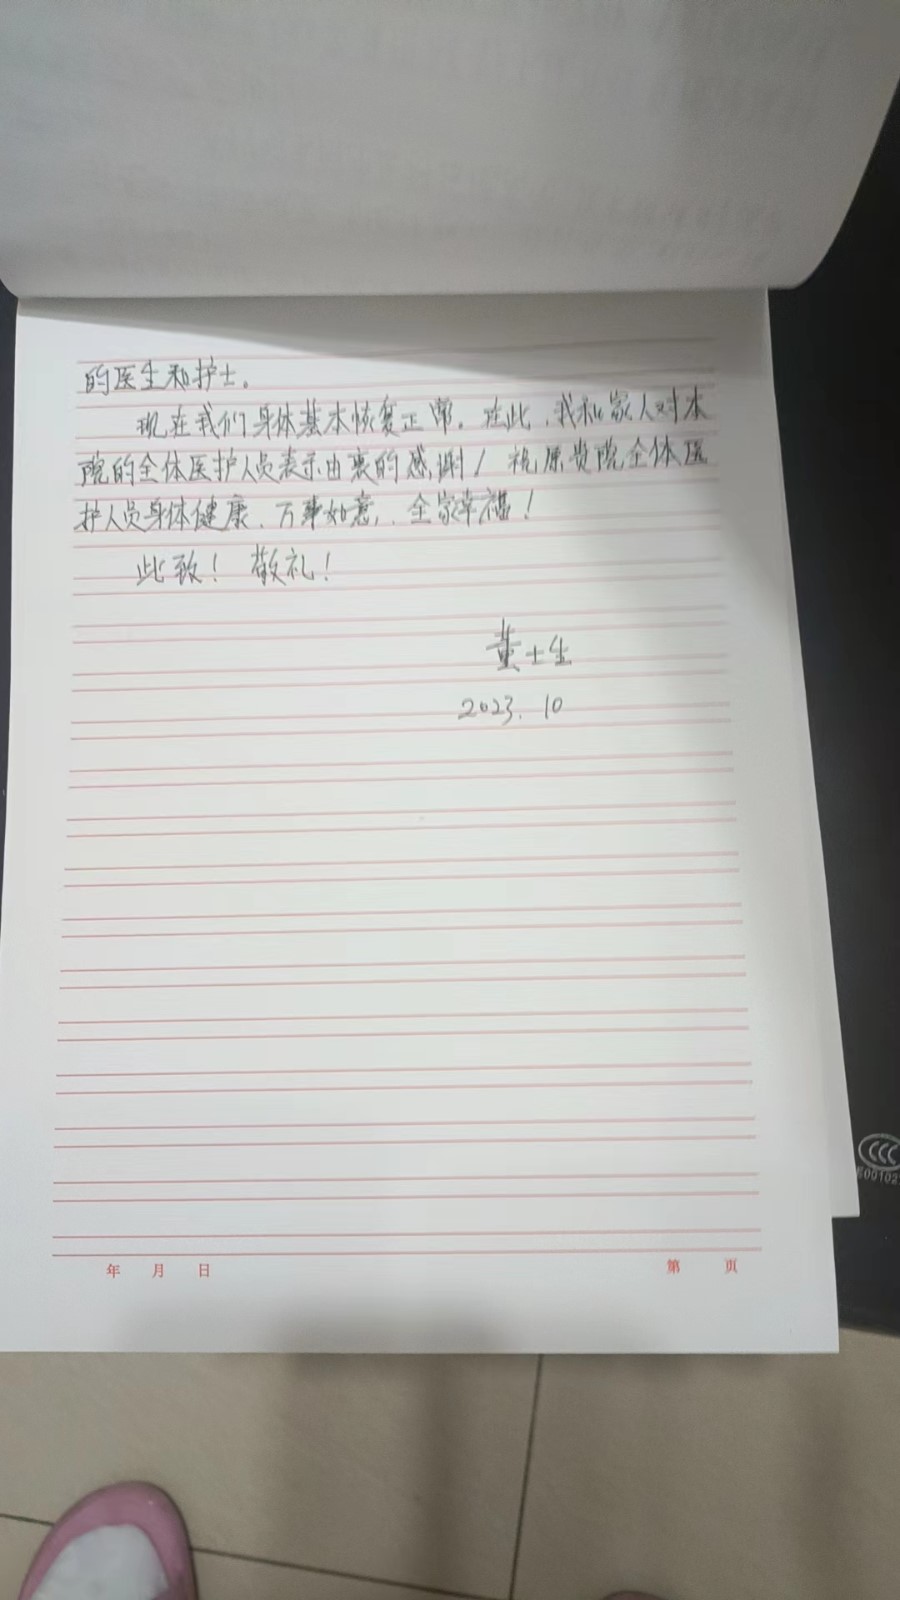 的医生和护士。
现在我们身体基本恢复正常。在此,我和家人对本
院的全体医护人员表示由衷的感谢!祝愿贵院全体医
护人员身体健康、万事如意、全家幸福!
此致!敬礼!
董士生
2023.10
年 月 日
第 页
CCC